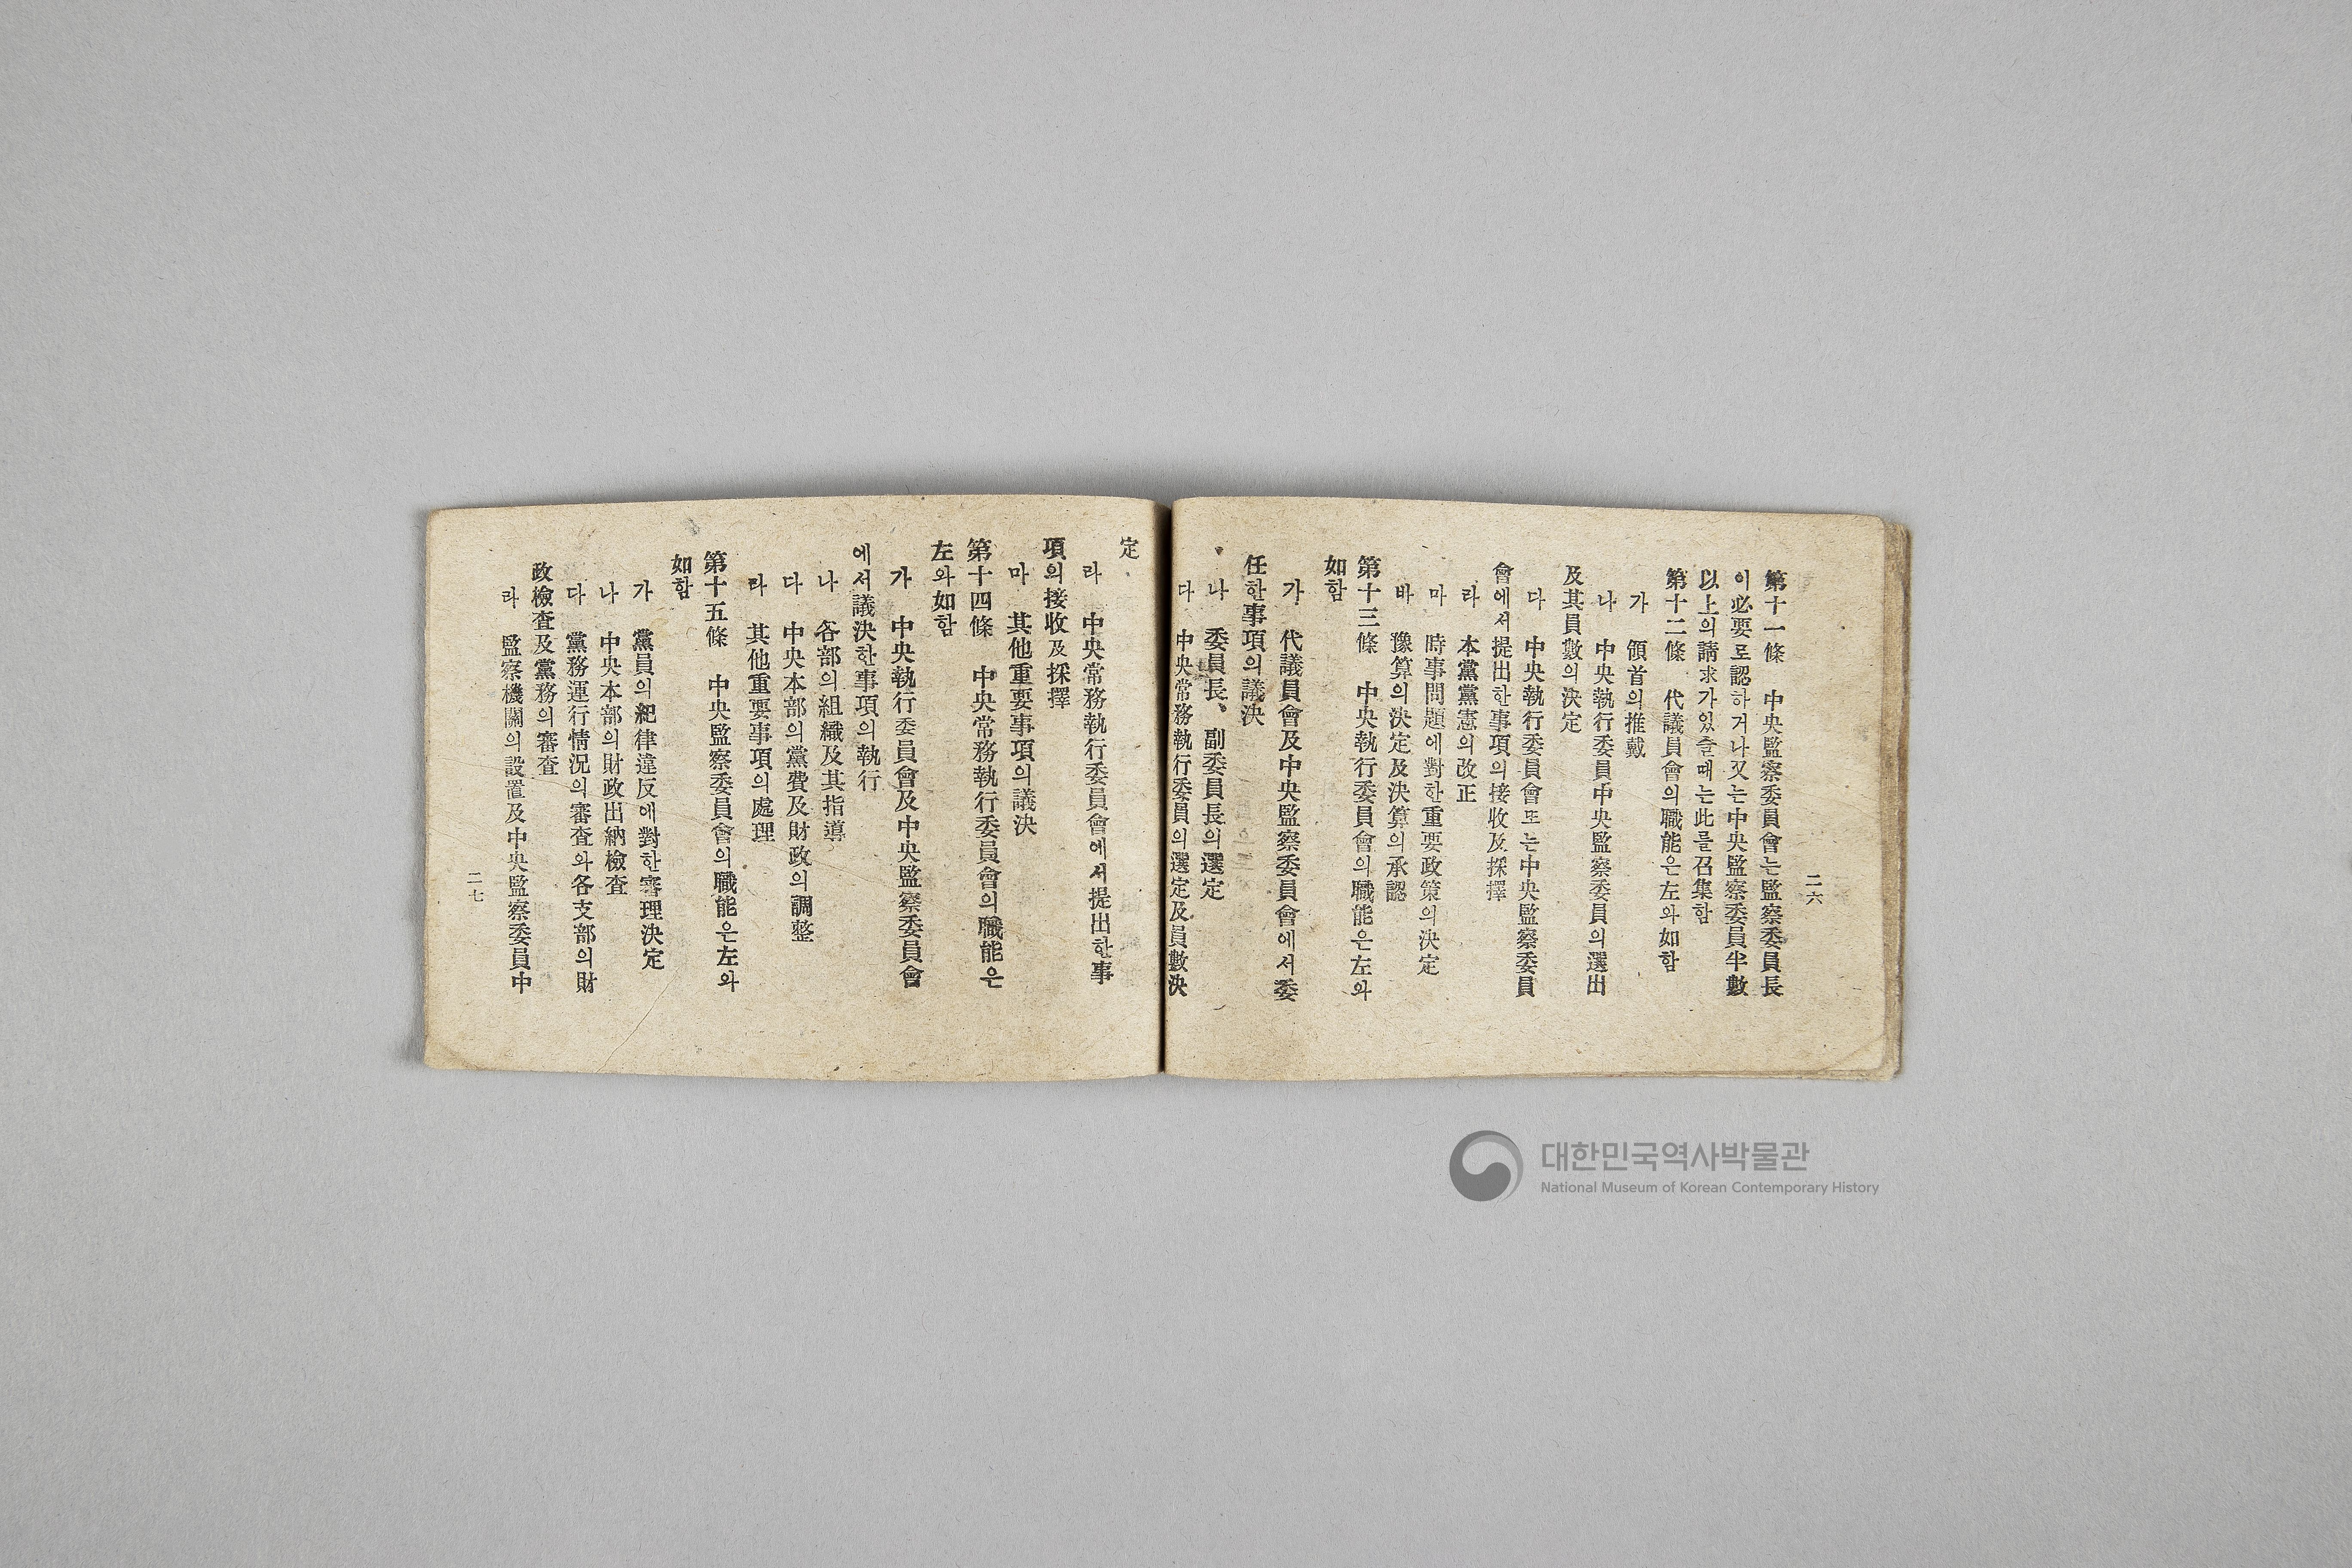 二六
第十一條　中央監察委員會는監察委員長
이必要로認하거나又는中央監察委員半數
以上의請求가있을때는此를召集함
第十二條　代議員會의職能은左와如함
가　領首의推戴
나　中央執行委員中央監察委員의選出
及其員數의決定
다　中央執行委員會또는中央監察委員
會에서提出한事項의接收及採擇
라　本黨黨憲의改正
마　時事問題에對한重要政策의決定
바　豫算의決定及決算의承認
第十三條　中央執行委員會의職能은左와
如함
가　代議員會及中央監察委員會에서委
任한事項의議決
나　委員長、副委員長의選定
다　中央常務執行委員의選定及員數決
定
라　中央常務執行委員會에서提出한事
項의接收及採擇
마　其他重要事項의議決
第十四條　中央常務執行委員會의職能은
左와如함
가　中央執行委員會及中央監察委員會
에서議決한事項의執行
나　各部의組織及其指導
다　中央本部의黨費及財政의調整
라　其他重要事項의處理
第十五條　中央監察委員會의職能은左와
如함
가　黨員의紀律違反에對한審理決定
나　中央本部의財政出納檢査
다　黨務運行情況의審査와各支部의財
政檢査及黨務의審査
라　監察機關의設置及中央監察委員中
二七
대한민국역사박물관
National Museum of Korean Contemporary History